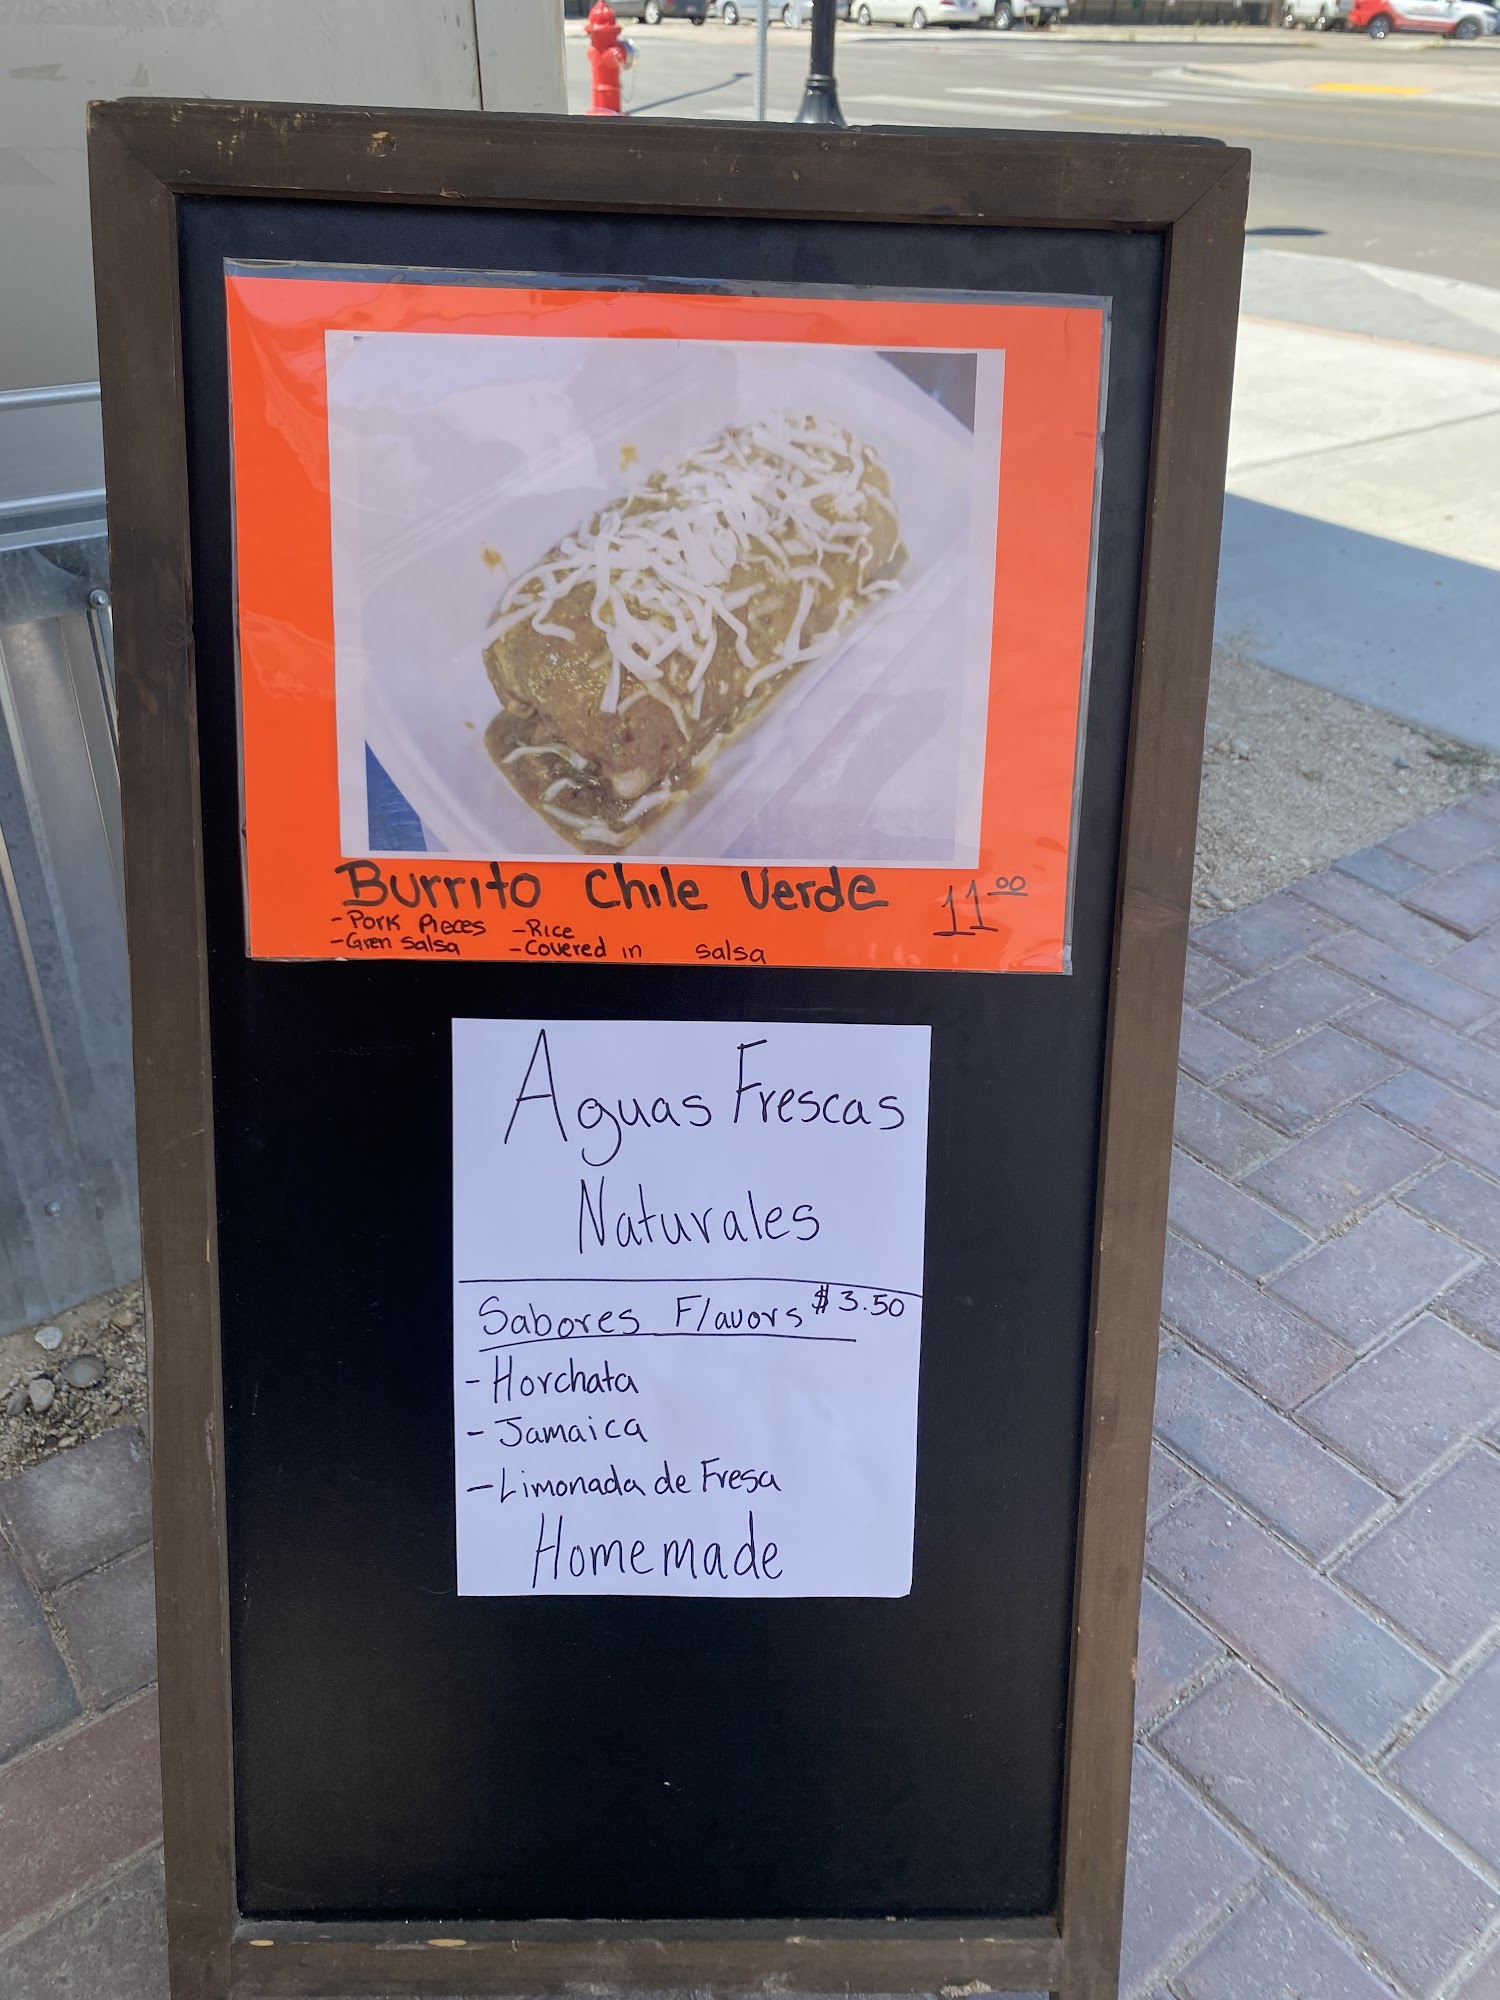 Burrito Chile Verde 11.00
- Pork Pieces - Rice
- Gren Salsa - Covered in salsa
Aguas Frescas
Naturales
Sabores Flavors $3.50
- Horchata
- Jamaica
- Limonada de Fresa
Homemade